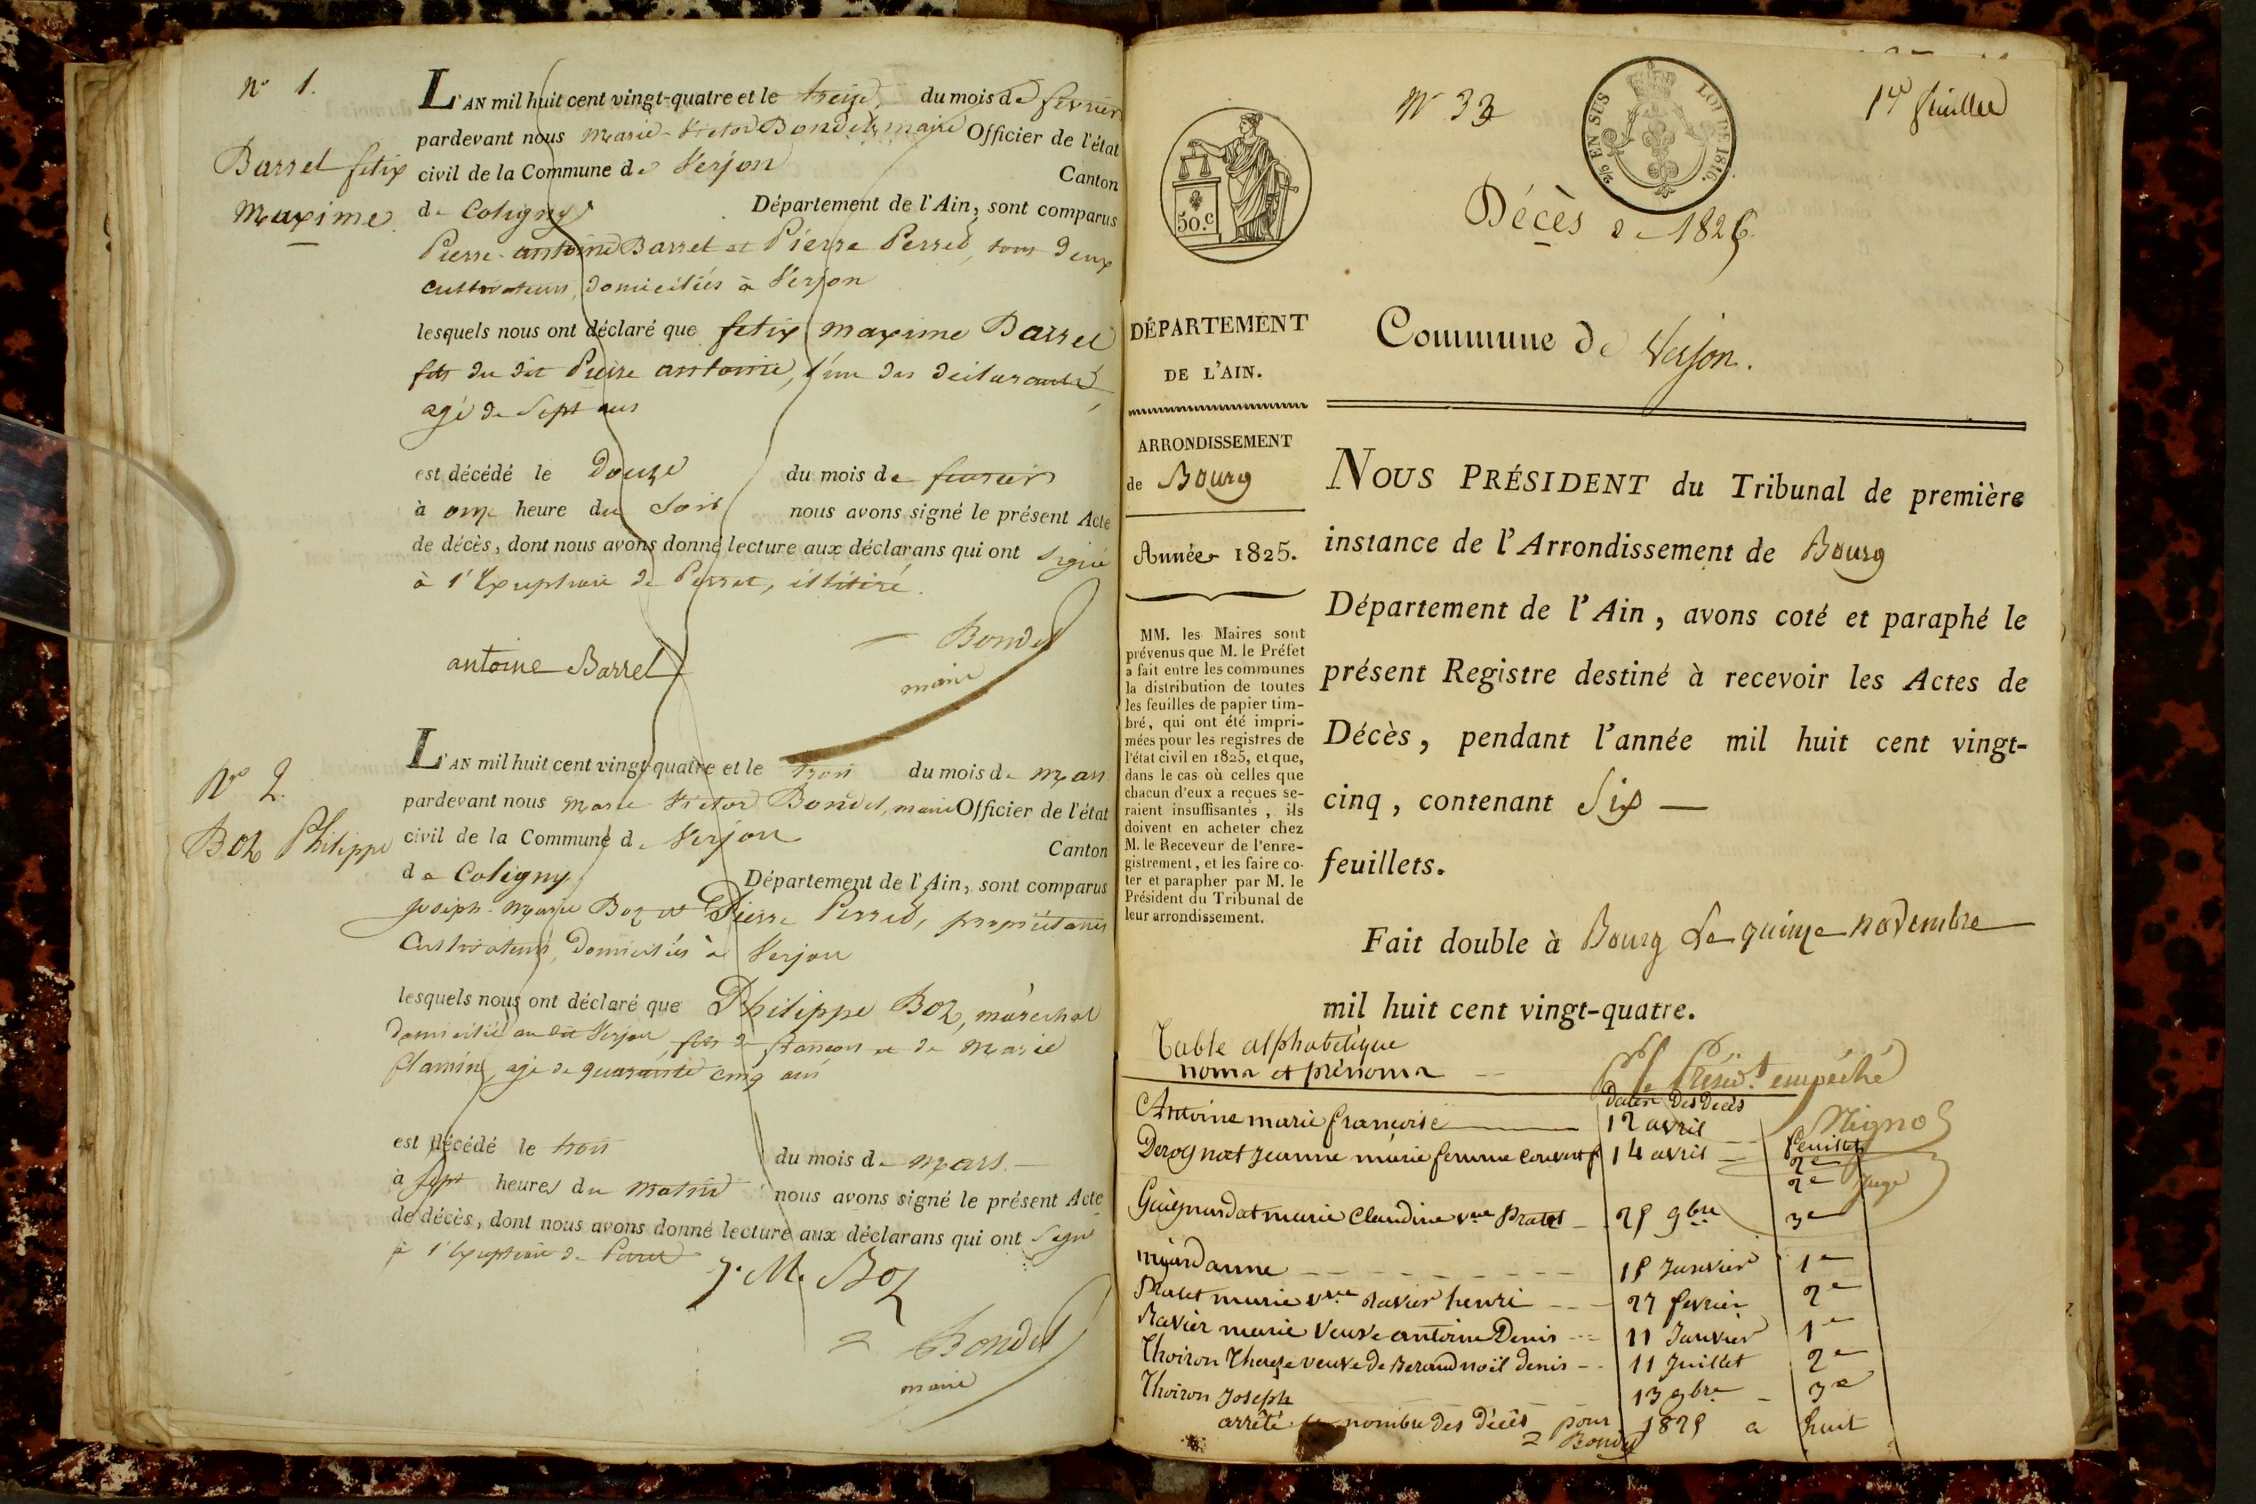 N° 1.
Barrel felix
Maxime.
L'AN mil huit cent vingt-quatre et le treize, du mois de fevrier
pardevant nous Marie-Victor Bondel, maire Officier de l'état
civil de la Commune de Verjon
Canton
de Coligny Département de l'Ain, sont comparus
Pierre-antoine Barrel et Pierre Perret, tous deux
cultivateurs, domiciliés à Verjon
lesquels nous ont déclaré que felix maxime Barrel
fils du dit Pierre antoine, l'un des déclarants,
agé de sept ans
est décédé le Douze du mois de fevrier
à onze heure du soir nous avons signé le présent Acte
de décès, dont nous avons donné lecture aux déclarans qui ont signé
à l'exception de Perret, illitiré.
antoine Barrel
Bondel
maire
N° 2.
Boz Philippe
L'AN mil huit cent vingt-quatre et le trois du mois de mars
pardevant nous Marie Victor Bondel, maire Officier de l'état
civil de la Commune de Verjon
Canton
de Coligny Département de l'Ain, sont comparus
joseph-Marie Boz et Pierre Perret, propriétaires
Cultivateurs, Domiciliés à Verjon
lesquels nous ont déclaré que Philippe Boz, maréchal
domicilié au dit Verjon, fils de françois et de Marie
flamin, agé de quarante cinq ans
est décédé le trois du mois de mars
à sept heures du matin nous avons signé le présent Acte
de décès, dont nous avons donné lecture aux déclarans qui ont signé
à l'exception de Perret
J. M. Boz
Bondel
maire
N° 33
2/0 EN SUS LOI DE 1816.
1er feuillet
50.c
Décès de 1825.
DÉPARTEMENT
DE L'AIN.
Commune de Verjon.
ARRONDISSEMENT
de Bourg
Année 1825.
MM. les Maires sont
prévenus que M. le Préfet
a fait entre les communes
la distribution de toutes
les feuilles de papier tim-
bré, qui ont été impri-
mées pour les registres de
l'état civil en 1825, et que,
dans le cas où celles que
chacun d'eux a reçues se-
raient insuffisantes, ils
doivent en acheter chez
M. le Receveur de l'enre-
gistrement, et les faire co-
ter et parapher par M. le
Président du Tribunal de
leur arrondissement.
NOUS PRÉSIDENT du Tribunal de première
instance de l'Arrondissement de Bourg
Département de l'Ain, avons coté et paraphé le
présent Registre destiné à recevoir les Actes de
Décès, pendant l'année mil huit cent vingt-
cinq, contenant Six —
feuillets.
Fait double à Bourg Le quinze novembre
mil huit cent vingt-quatre.
Ple Présid.t empéché
Mignot
Juge
Table alphabétique
noms et prénoms
Dates des décès
feuillets
Antoine marie françoise 12 avril 2e
Derognat Jeanne marie femme Convert 14 avril 2e
Guignardat marie Claudine vve Pratet 25 9bre 3e
myard anne 15 Janvier 1e
Pratet marie vve Ravier henri 27 fevrier 2e
Ravier marie veuve antoine Denis 11 Janvier 1e
Thoiron Thereze veuve de Beraud noël denis 11 Juillet 2e
Thoiron Joseph 13 9bre 3e
arrêté le nombre des décès pour 1825 a huit
Bondel